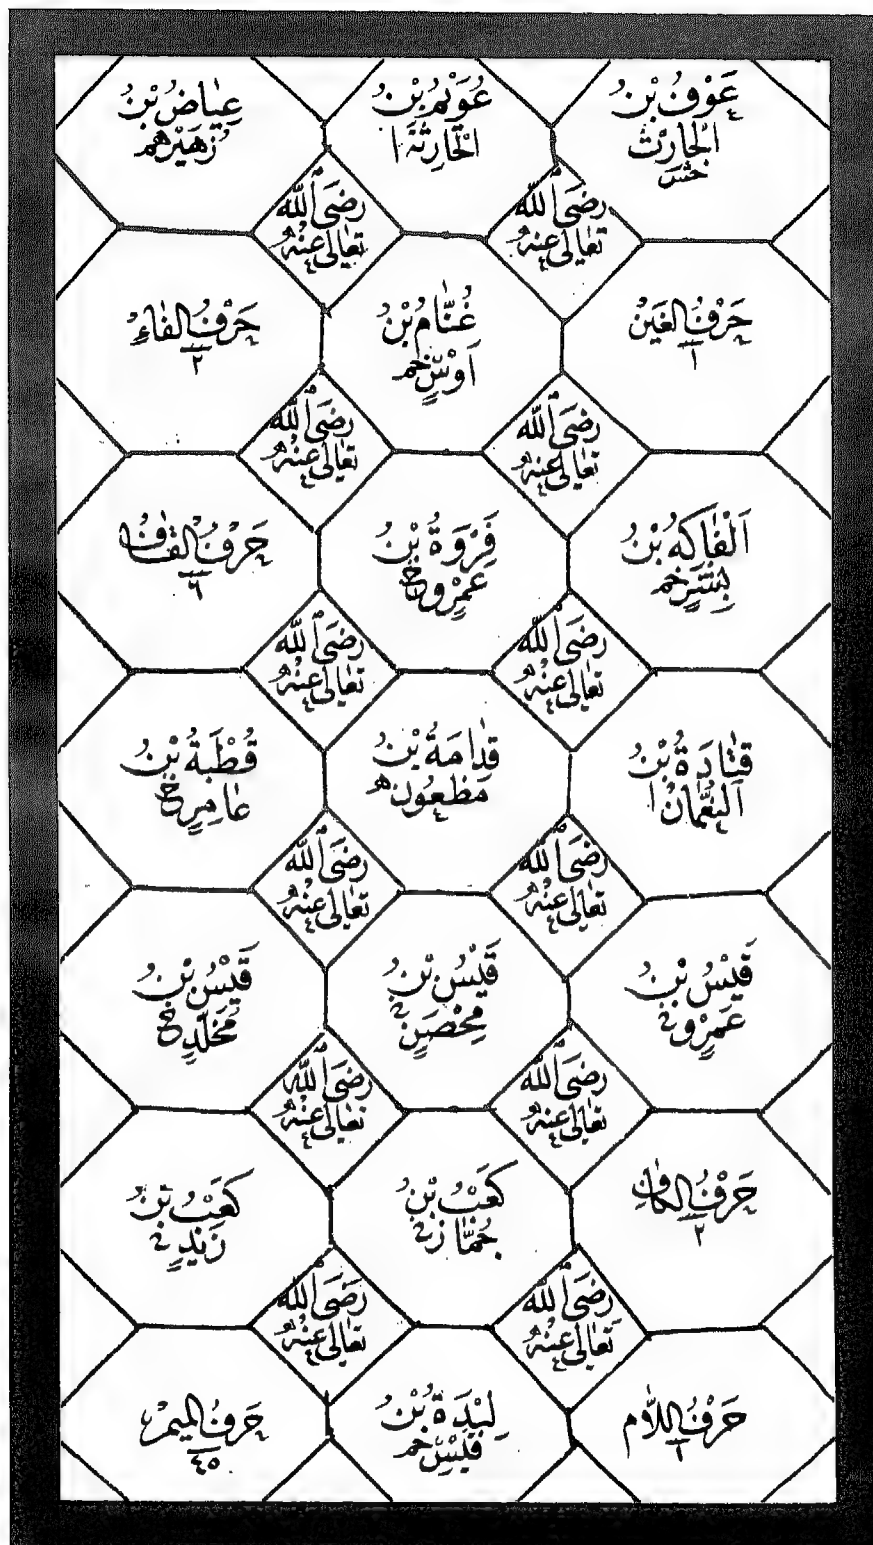 عَوْفُ بْنُ
الْحَارِثِ
عُوَيْمُ بْنُ
الْحَارِثَةِ ا
عِيَاضُ بْنُ
زُهَيْرٍ هم
رَضِيَ اللّٰهُ
تَعَالٰى عَنْهُ
رَضِيَ اللّٰهُ
تَعَالٰى عَنْهُ
حَرْفُ الْغَيْنِ
١
غَنَّامُ بْنُ
اَوْسٍ خم
حَرْفُ الْفَاءِ
٢
رَضِيَ اللّٰهُ
تَعَالٰى عَنْهُ
رَضِيَ اللّٰهُ
تَعَالٰى عَنْهُ
اَلْفَاكِهُ بْنُ
بِشْرٍ خم
فَرْوَةُ بْنُ
عَمْرٍو خ
حَرْفُ الْقَافِ
٦
رَضِيَ اللّٰهُ
تَعَالٰى عَنْهُ
رَضِيَ اللّٰهُ
تَعَالٰى عَنْهُ
قَتَادَةُ بْنُ
النُّعْمَانِ ا
قُدَامَةُ بْنُ
مَظْعُونٍ ه
قُطْبَةُ بْنُ
عَامِرٍ خ
رَضِيَ اللّٰهُ
تَعَالٰى عَنْهُ
رَضِيَ اللّٰهُ
تَعَالٰى عَنْهُ
قَيْسُ بْنُ
عَمْرٍو
قَيْسُ بْنُ
مِحْصَنٍ
قَيْسُ بْنُ
مُخَلَّدٍ خ
رَضِيَ اللّٰهُ
تَعَالٰى عَنْهُ
رَضِيَ اللّٰهُ
تَعَالٰى عَنْهُ
حَرْفُ الْكَافِ
٢
كَعْبُ بْنُ
جُمَّازٍ
كَعْبُ بْنُ
زَيْدٍ
رَضِيَ اللّٰهُ
تَعَالٰى عَنْهُ
رَضِيَ اللّٰهُ
تَعَالٰى عَنْهُ
حَرْفُ اللَّامِ
١
لِبْدَةُ بْنُ
قَيْسٍ خم
حَرْفُ الْمِيمِ
٤٥